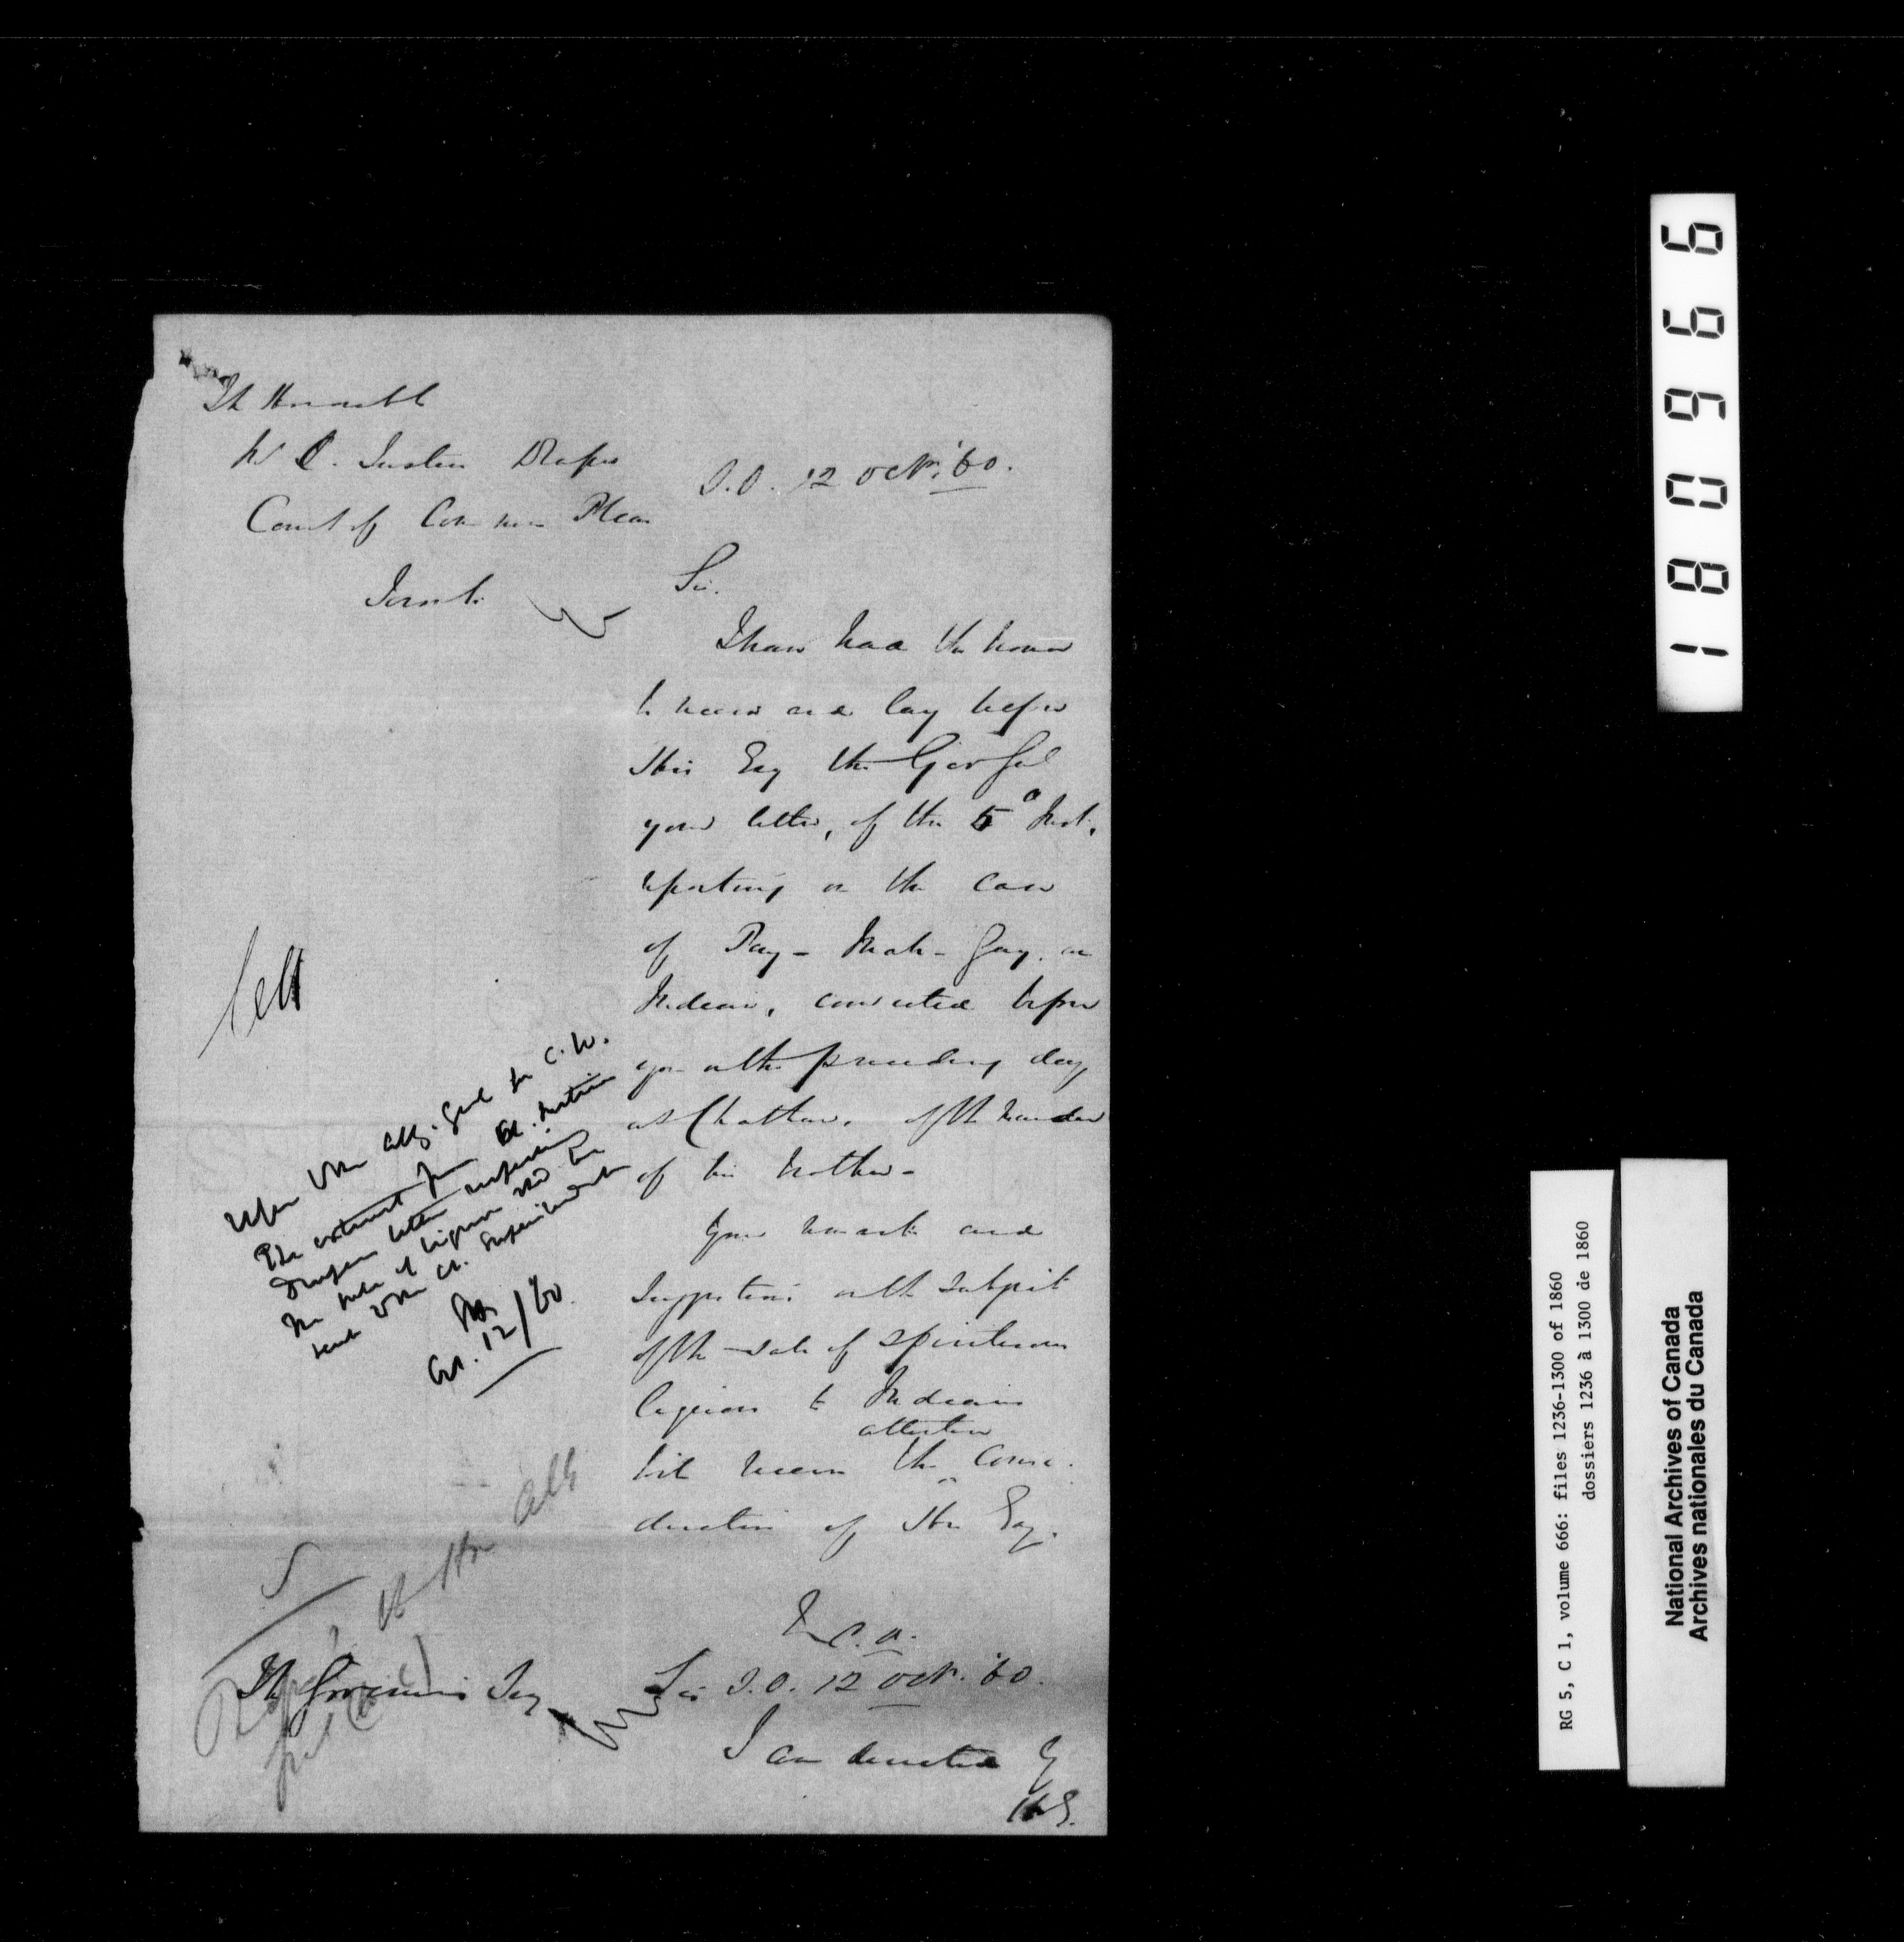 The Honorable
W C. Justice Draper
Court of Common Pleas
Toronto
S.O. 12 Octr. '60.
Sir.
I have had the honor
to receive and lay before
His Exy the Gov Genl
your letter, of the 5th Inst.
reporting on the case
of Pay-Mah-Gay. an
Indian, convicted before
you on the preceding day
at Chatham. of the murder
of his Mother-
Your remarks and
suggestions on the subject
of the sale of spirituous
liquors to Indians
attentive
will receive the consi-
deration of His Exy.
Refer to the Atty. Genl for C.W.
The extract from Ch. Justice
Drapers letter respecting
the sale of liquor to be
sent to the Ch. Superintendent
Oct. 12/60.
to Hon Atty
The Governor's Secy
Sir S.O. 12 Octr. '60.
I am directed by
H.E.
180966
RG 5, C 1, volume 666: files 1236-1300 of 1860
dossiers 1236 à 1300 de 1860
National Archives of Canada
Archives nationales du Canada